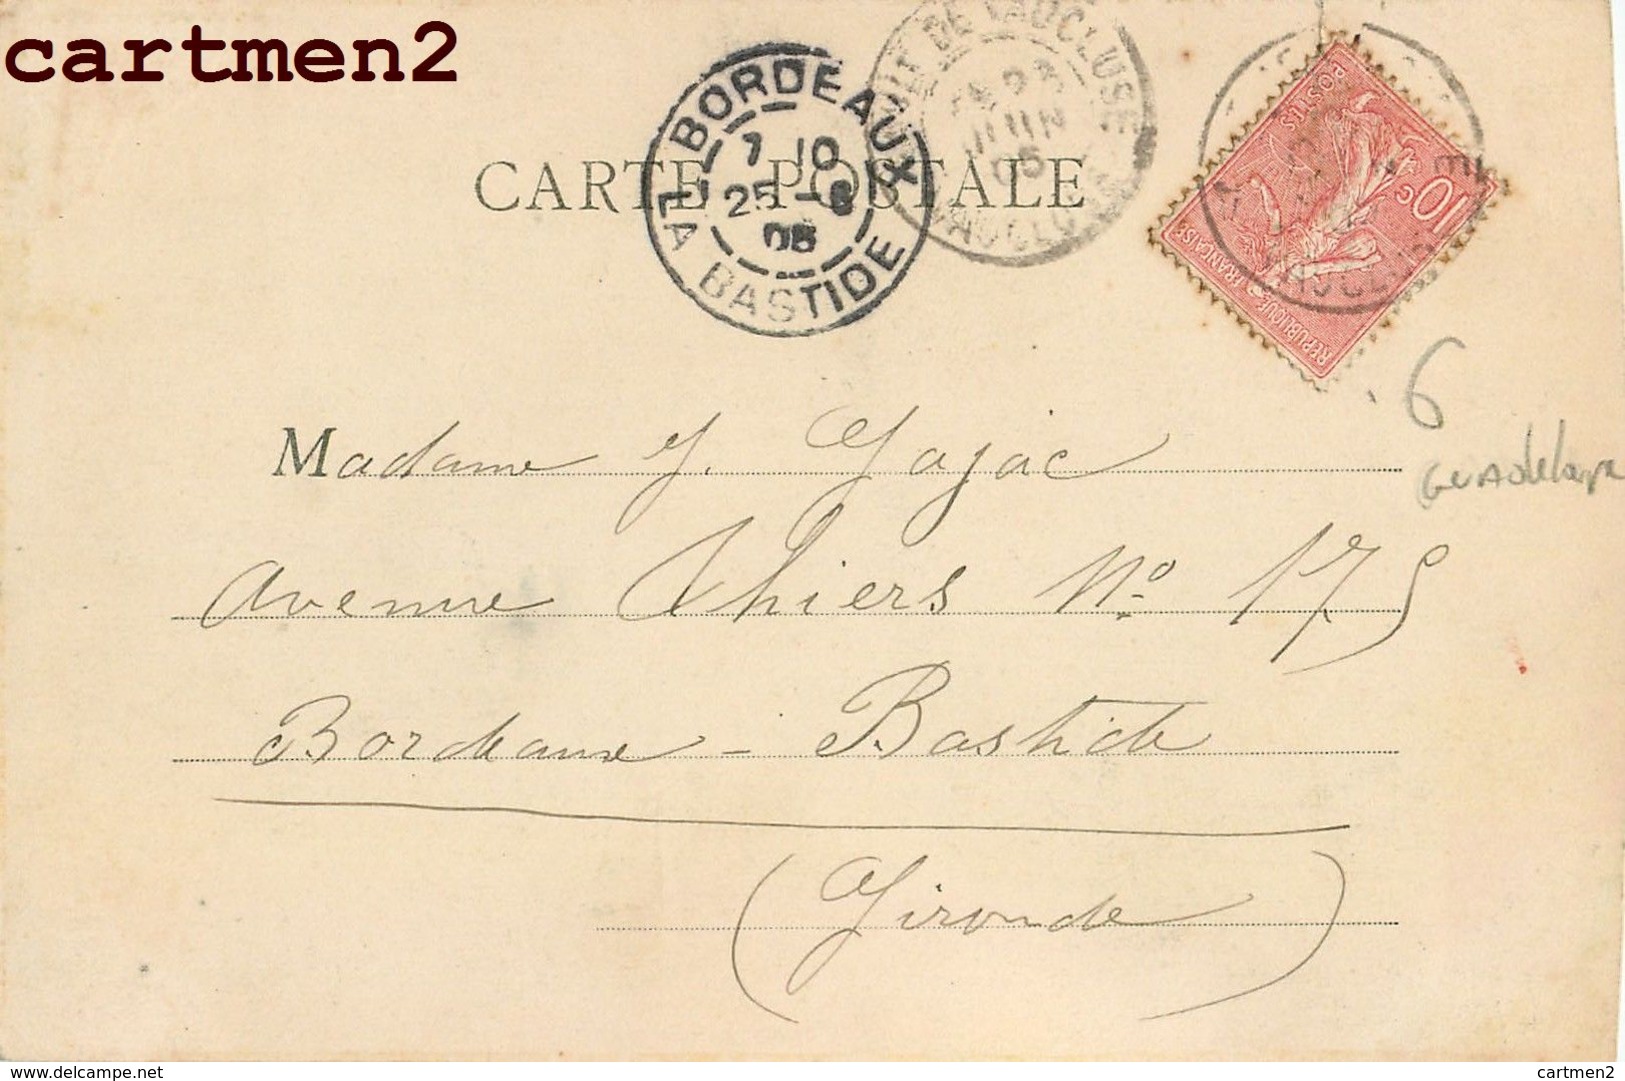 cartmen2
CARTE POSTALE
BORDEAUX
7 10
25 -6
05
LA BASTIDE
DE VAUCLUSE
23
JUIN
05
VAUCLUSE
POSTES
10 c
REPUBLIQUE FRANÇAISE
6
Madame J. Gajac
Avenue Thiers No 175
Bordeaux - Bastide
(Gironde)
https://www.delcampe.net
cartmen2